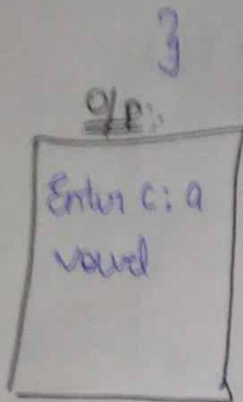 }
o/p:
Enter c: a
vowel